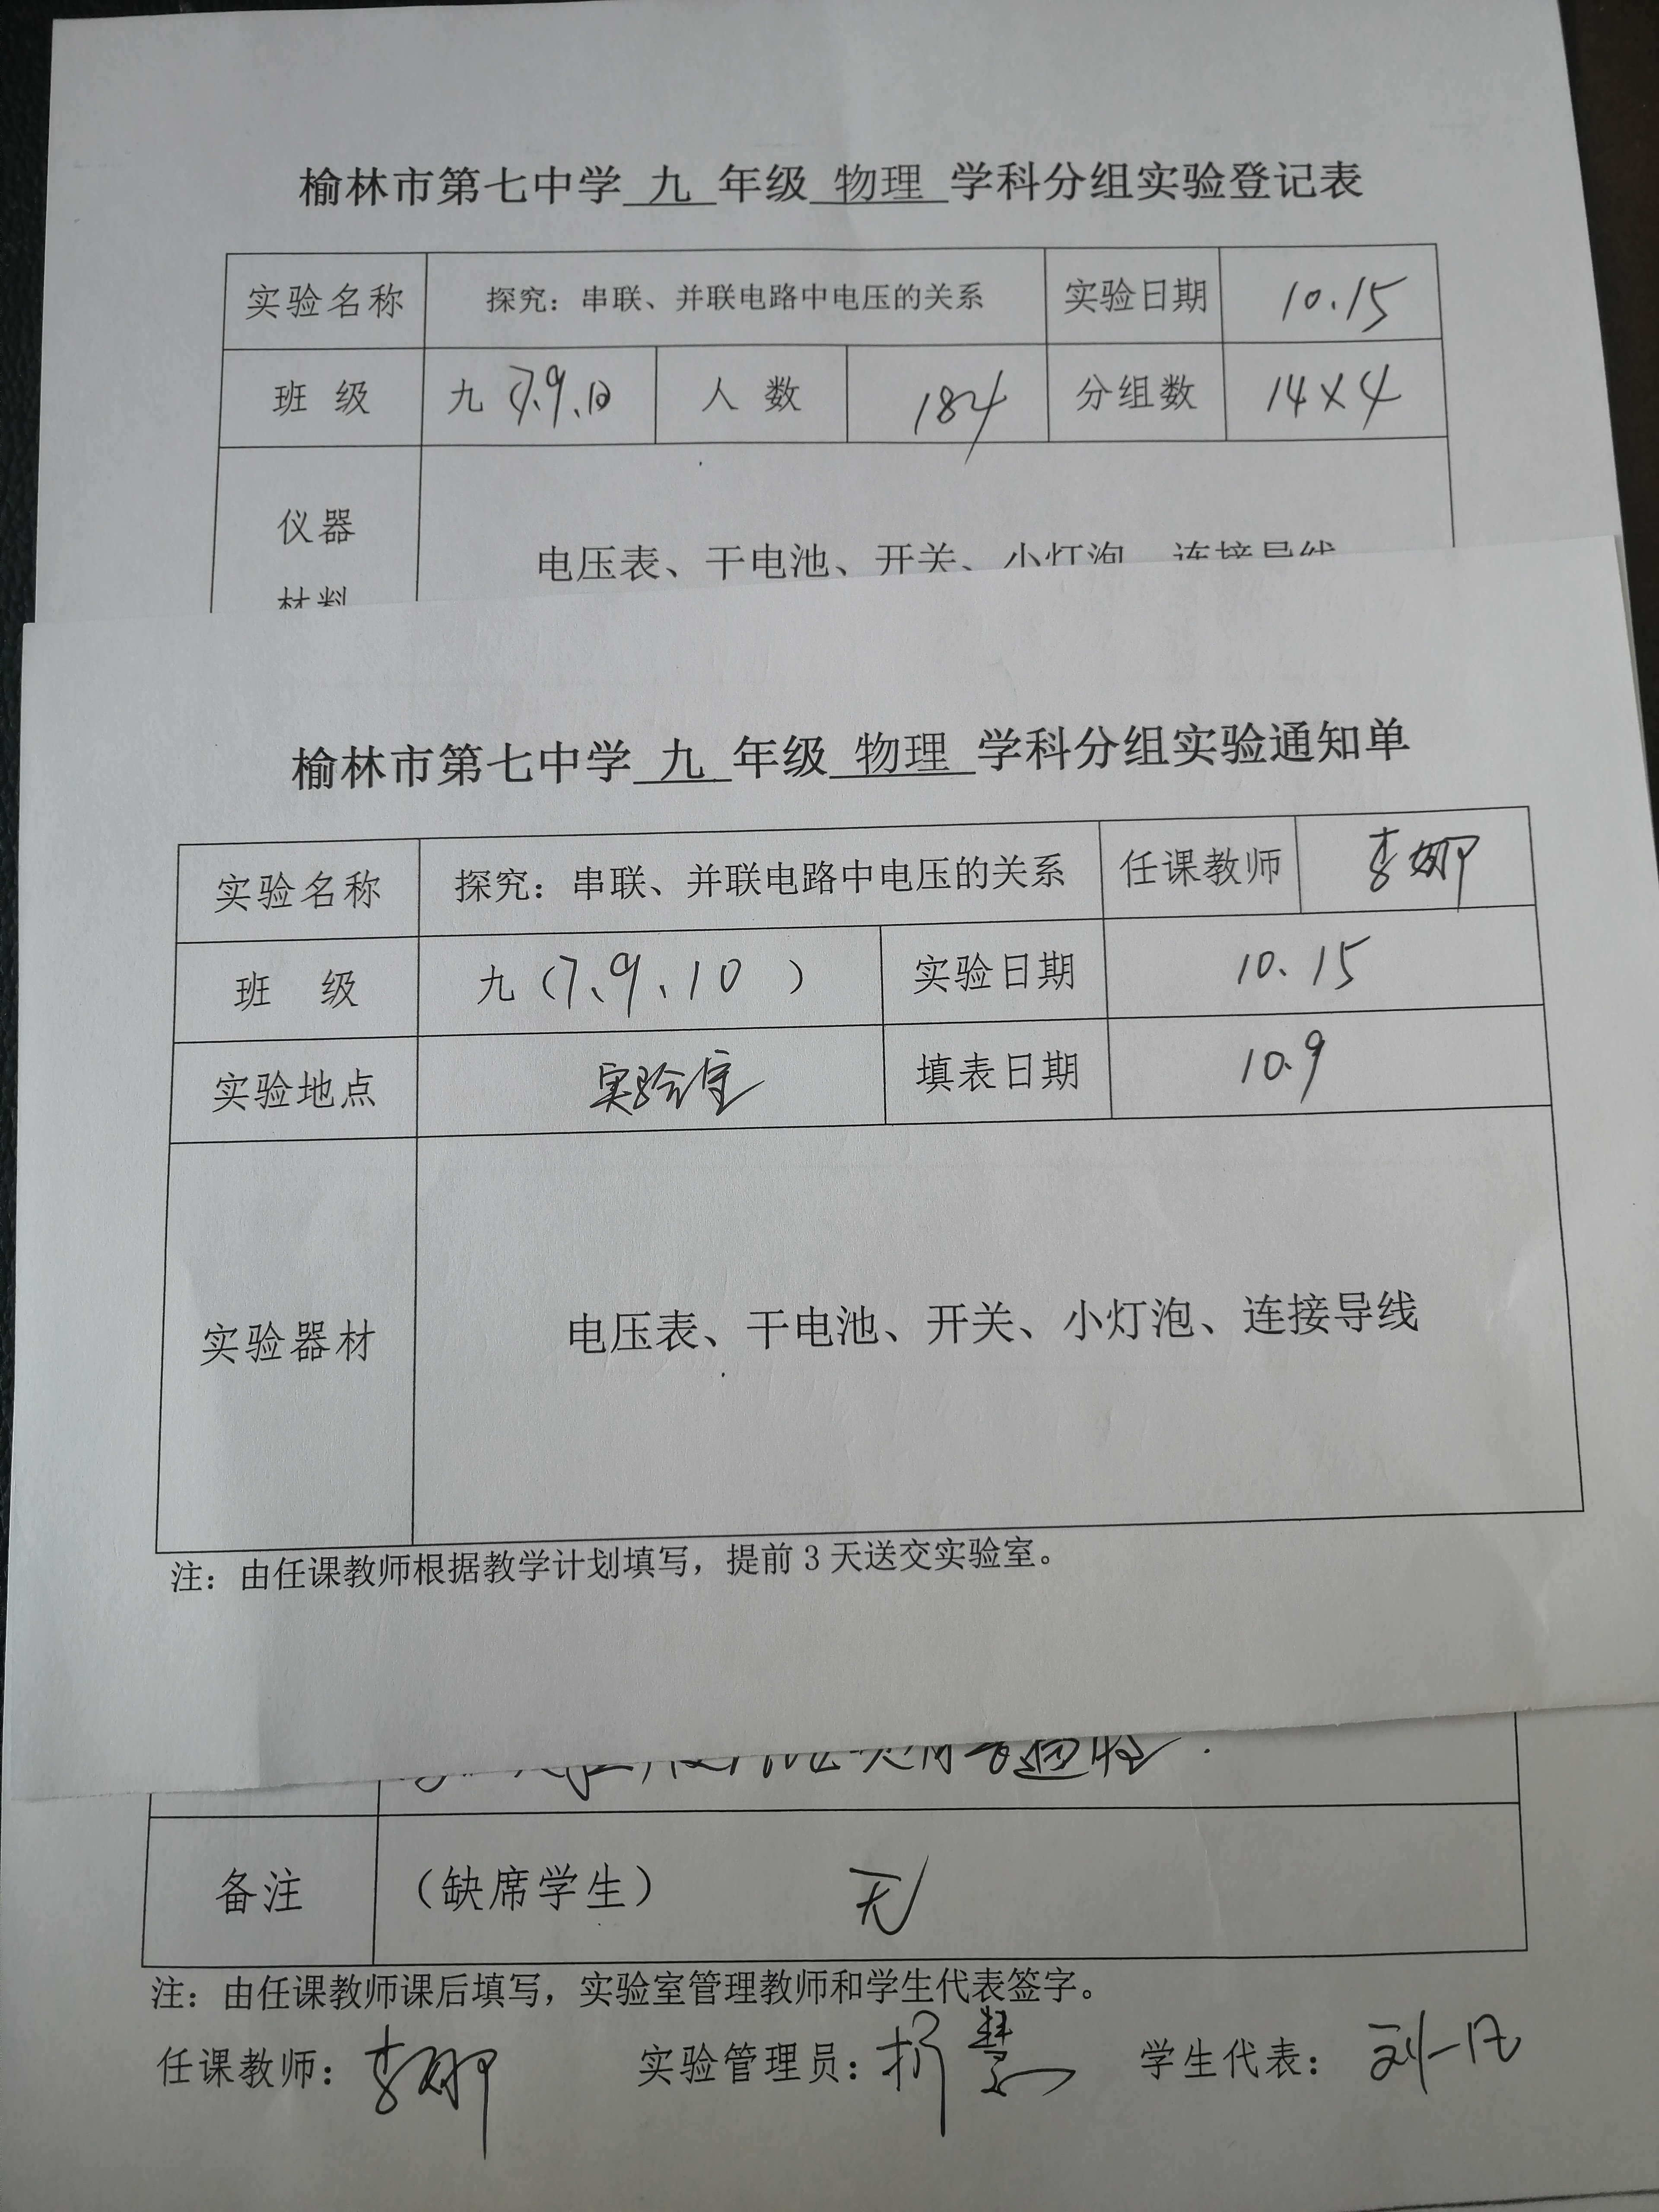 榆林市第七中学 九 年级 物理 学科分组实验登记表
实验名称 探究：串联、并联电路中电压的关系 实验日期 10.15
班 级 九（7、9、10 人 数 184 分组数 14×4
仪器 电压表、干电池、开关、小灯泡、连接导线
材料
榆林市第七中学 九 年级 物理 学科分组实验通知单
实验名称 探究：串联、并联电路中电压的关系 任课教师 李娜
班 级 九（7、9、10 ） 实验日期 10.15
实验地点 实验室 填表日期 10.9
实验器材 电压表、干电池、开关、小灯泡、连接导线
注：由任课教师根据教学计划填写，提前3天送交实验室。
备注 （缺席学生） 无
注：由任课教师课后填写，实验室管理教师和学生代表签字。
任课教师：李娜 实验管理员：折慧 学生代表：刘一凡